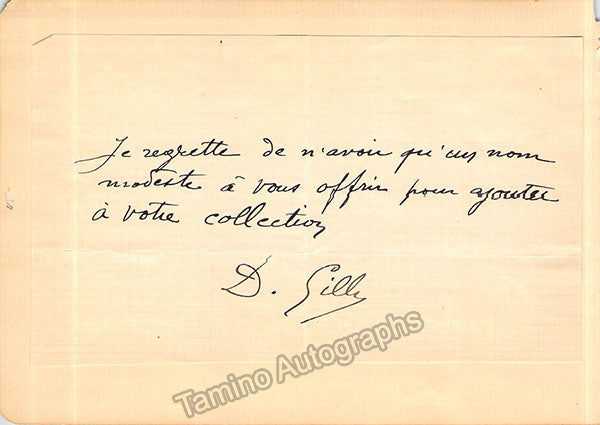 Je regrette de n'avoir qu'un nom
modeste à vous offrir pour ajouter
à votre collection
D. Gilly
Tamino Autographs